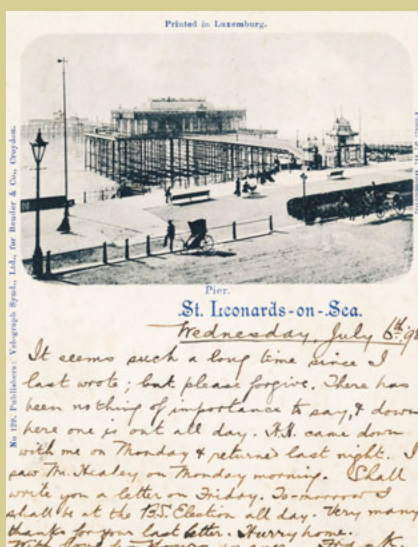 Printed in Luxemburg.
No 129. Publishers: Velograph Synd., Ltd., for Bender & Co., Croydon.
Pier.
St. Leonards-on-Sea.
Wednesday, July 6th 98
It seems such a long time since I
last wrote; but please forgive. There has
been nothing of importance to say, & down
here one is out all day. came down
with me on Monday & returned last night. I
saw Mr. Healey on Monday morning. Shall
write you a letter on Friday. To-morrow I
shall be at the Election all day. Very many
thanks for your last letter. Hurry home.
With